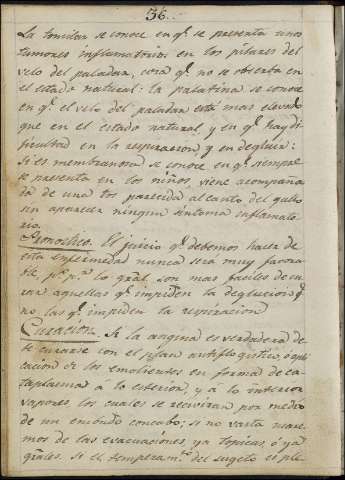 36.
La tonsilar se conoce en q.e se presenta unos
tumores inflamatorios en los pilares del
velo del paladar, cosa q.e no se observa en
el estado natural: la palatina se conoce
en q.e el velo del paladar está mas elevado
que en el estado natural, y en q.e hay di-
ficultad en la respiracion y en deglucir:
Si es membranosa se conoce en q.e siempre
se presenta en los niños, viene acompaña-
da de una tos parecida al canto del gallo
sin aparecer ningun sintoma inflamato-
rio.
Pronostico. El juicio q.e debemos hacer de
esta enfermedad nunca será muy favora-
ble p.r q.e p.r lo gral. son mas faciles de cu-
rar aquellas q.e impiden la deglucion q.e
no las q.e impiden la respiracion
Curacion. Si la angina es verdadera de-
be curarse con el plan antiflogistico, ó apli-
cacion de los emolientes en forma de ca-
taplasma á lo esterior, y á lo interior
vapores los cuales se reciviran por medio
de un embudo concabo; si no vasta usare-
mos de las evacuaciones, ya topicas, ó ya
grales. Si el temperam.to del sugeto es ple-